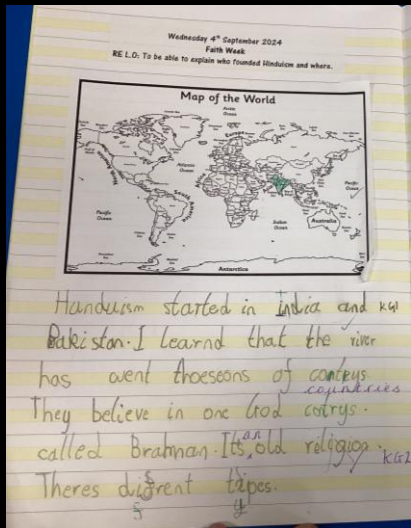 Wednesday 4th September 2024
Faith Week
RE L.O: To be able to explain who founded Hinduism and where.
Map of the World
Arctic Ocean
Europe
North America
Atlantic Ocean
Pacific Ocean
Africa
Pacific Ocean
South America
Indian Ocean
Australia
Antarctica
Handuism started in India and KG1
Pakistan. I learnd that the river
has thoeseons of contrys
countries
They believe in one God cotrys.
called Brahman. Its an old religion.
KG2
Theres difrent tipes.
y